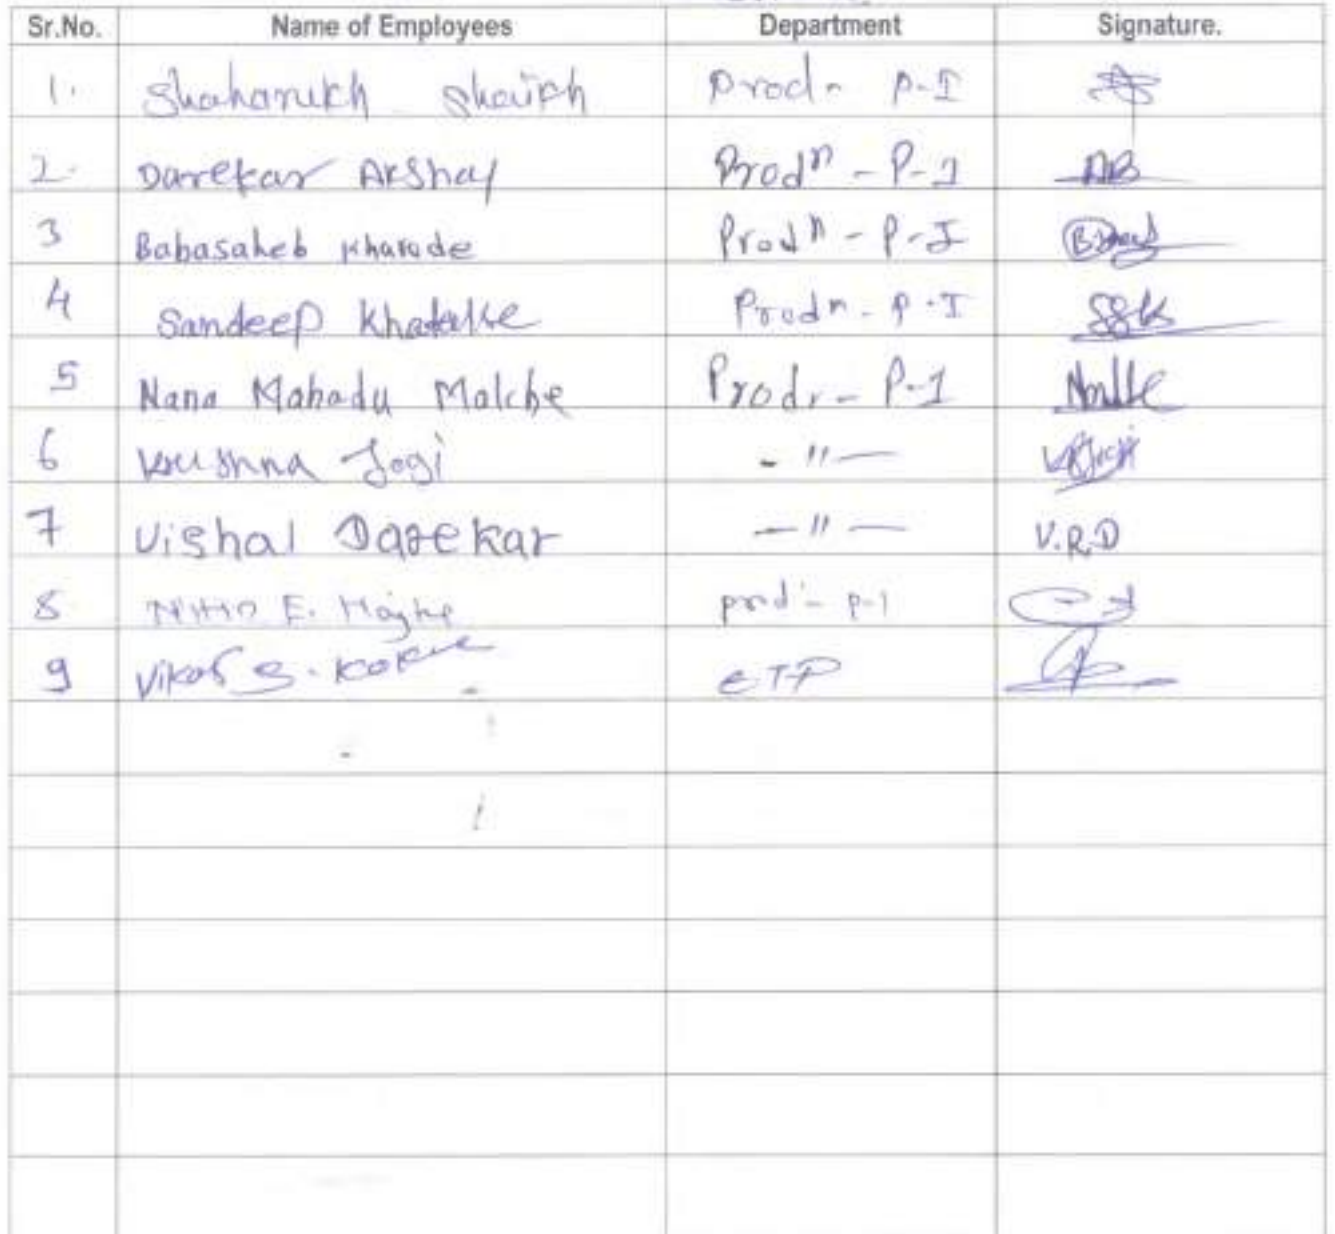 Sr.No. Name of Employees Department Signature.
1. Shaharukh Shaikh Prodn P-I
2. Darekar Akshay Prodn - P-1 AB
3 Babasaheb Kharade Prodn - P-I
4 Sandeep Prodn - P-I SSK
5 Nana Mahadu Malche Prodn - P-1
6 Krushna Jogi - " -
7 Vishal Darekar - " - V.R.D
8 E. prod - P-1
9 Vikas S. ETP